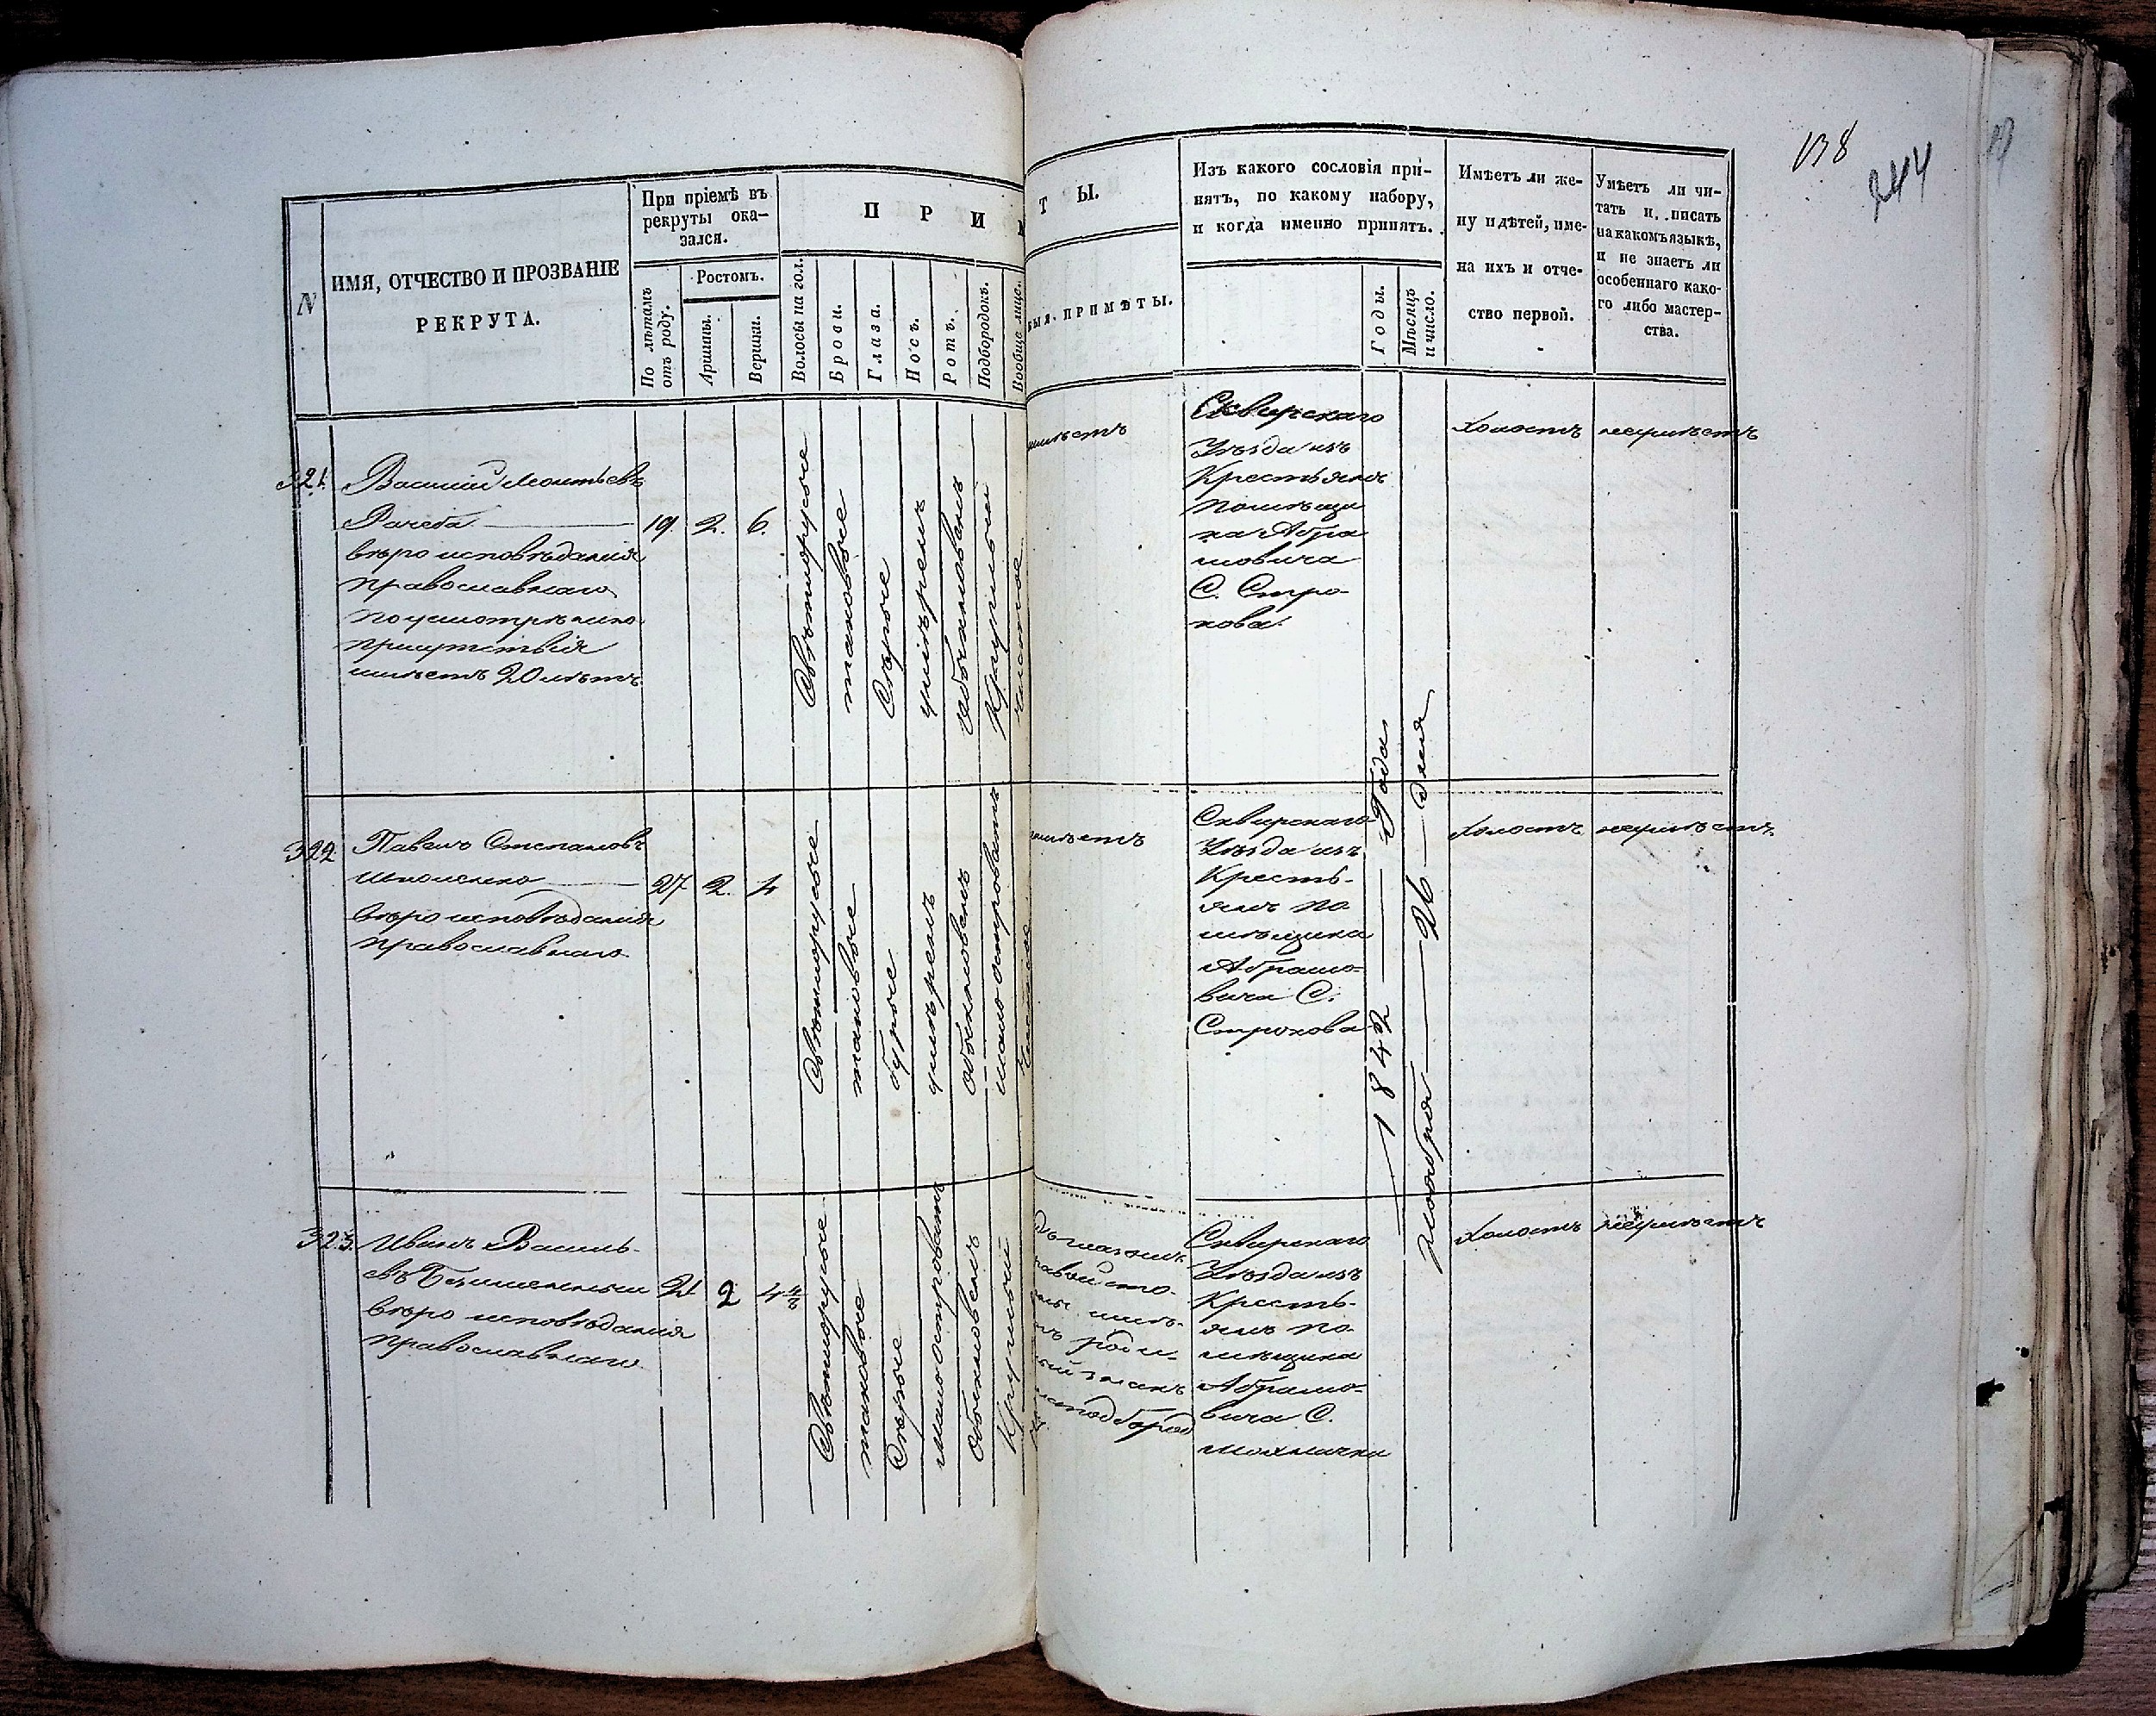 138
244
N
ИМЯ, ОТЧЕСТВО И ПРОЗВАНІЕ
РЕКРУТА.
При пріемѣ въ
рекруты ока-
зался.
По лѣтамъ
отъ роду.
Ростомъ.
Аршины.
Вершки.
П Р И М
Волосы на гол.
Брови.
Глаза.
Носъ.
Ротъ.
Подбородокъ.
Вообще лице.
Т Ы.
ЫЯ. ПРИМѢТЫ.
Изъ какого сословія при-
нятъ, по какому набору,
и когда именно принятъ.
Годы.
Мѣсяцъ
и число.
Имѣетъ ли же-
ну и дѣтей, име-
на ихъ и отче-
ство первой.
Умѣетъ ли чи-
тать и писать
на какомъ языкѣ,
и не знаетъ ли
особеннаго како-
го либо мастер-
ства.
321.
Василий Леонтьевъ
Рачеба
вѣро исповѣданія
православнаго
по усмотрѣнію
присутствія
имѣетъ 20 лѣтъ.
19. 2. 6.
Свѣтлорусые
таковые
Сѣрые
умѣренъ
обыкновенъ
Круглый
чистое
имѣетъ
Сквирскаго
Уѣзда изъ
Крестьянъ
помѣщи
ка Абра
мовича
С. Стро-
кова.
Холостъ
неумѣетъ
322
Павелъ Степановъ
вѣро исповѣданія
православнаго.
27 2. 4
Свѣтлорусые
таковые
бурые
умѣренъ
обыкновенъ
мало островатъ
чистое
имѣетъ
Сквирскаго
Уѣзда изъ
Кресть-
янъ по-
мѣщика
Абрамо-
вича С.
Строкова
1842 Года
Ноября 26 дня
Холостъ
неумѣетъ
323.
Иванъ Василь-
евъ
вѣро исповѣданія
православнаго
21 2 4 4/8
Свѣтлорусые
таковые
Сѣрые
мало островатъ
Обыкновенъ
Круглый
Сквирскаго
Уѣзда изъ
Кресть-
янъ по-
мѣщика
Абрамо-
вича С.
Холостъ
неумѣетъ